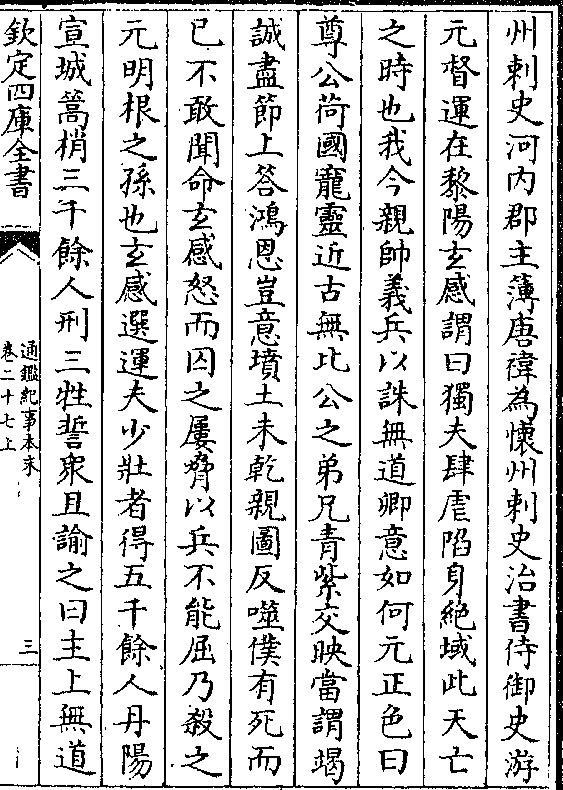 州刺史河内郡主簿唐禕為懷州刺史治書侍御史游
元督運在黎陽玄感謂曰獨夫肆虐陷身絶域此天亡
之時也我今親帥義兵以誅無道卿意如何元正色曰
尊公荷國寵靈近古無比公之弟兄青紫交映當謂竭
誠盡節上答鴻恩豈意墳土未乾親圖反噬僕有死而
已不敢聞命玄感怒而囚之屢脅以兵不能屈乃殺之
元明根之孫也玄感選運夫少壯者得五千餘人丹陽
宣城篙梢三千餘人刑三牲誓衆且諭之曰主上無道
欽定四庫全書
通鑑紀事本末
卷二十七上
三